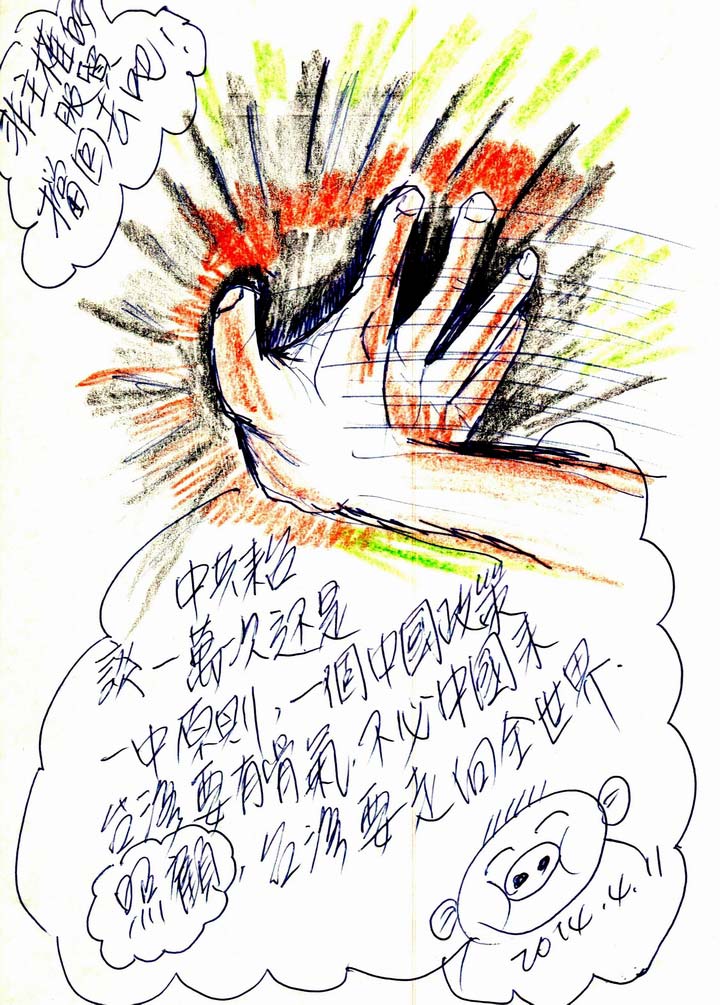 非主權的
服貿
擋回去吧!
中共來台
談一萬次還是
一中原則,一個中國政策
台灣要有骨氣.不必中國來
照顧,台灣要走向全世界.
2014.4.11